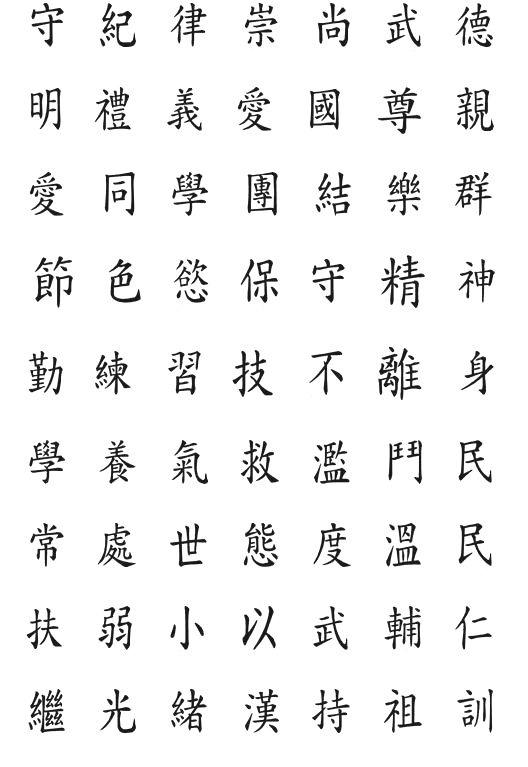 守紀律崇尚武德
明禮義愛國尊親
愛同學團結樂群
節色慾保守精神
勤練習技不離身
學養氣救濫鬥民
常處世態度溫民
扶弱小以武輔仁
繼光緒漢持祖訓